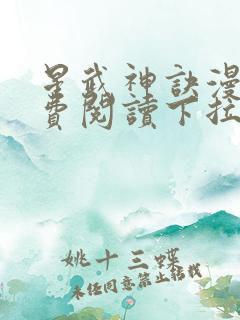 星武神訣漫
費閱讀下拉
姚十三蝶
未经同意禁止转载